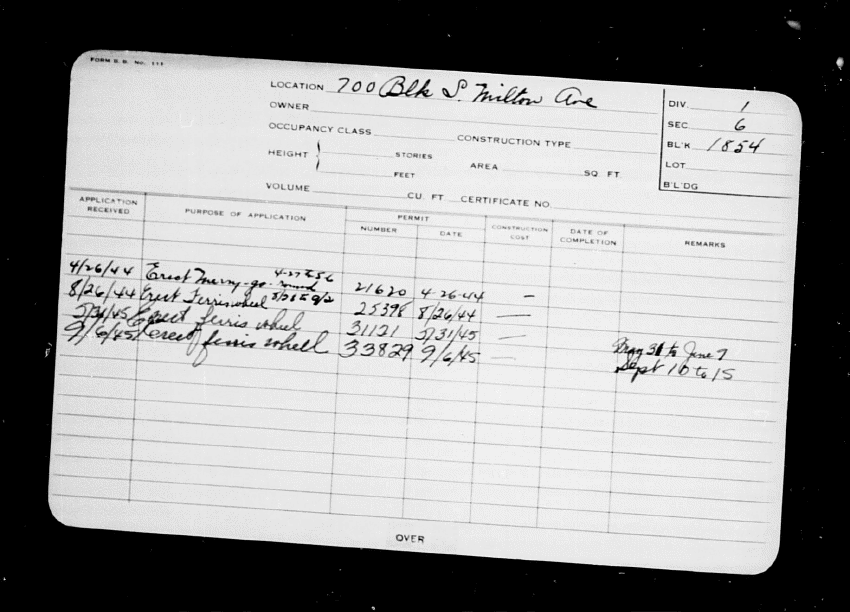 FORM B. B. No. 111
LOCATION 700 Blk S. Milton Ave
OWNER
OCCUPANCY CLASS CONSTRUCTION TYPE
HEIGHT STORIES
FEET
AREA SQ FT.
VOLUME CU. FT. CERTIFICATE NO.
DIV. 1
SEC 6
BL'K. 1854
LOT
B'L'DG
APPLICATION RECEIVED PURPOSE OF APPLICATION PERMIT NUMBER DATE CONSTRUCTION COST DATE OF COMPLETION REMARKS
4/26/44 Erect Merry-go-round 4-27 to 5 6 21620 4-26-44 —
8/26/44 Erect Ferris wheel 8/28 to 9/2 25398 8/26/44 —
5/31/45 Erect ferris wheel 31121 5/31/45 — May 31 to June 7
9/6/45 erect ferris wheell 33829 9/6/45 — Sept 10 to 15
OVER